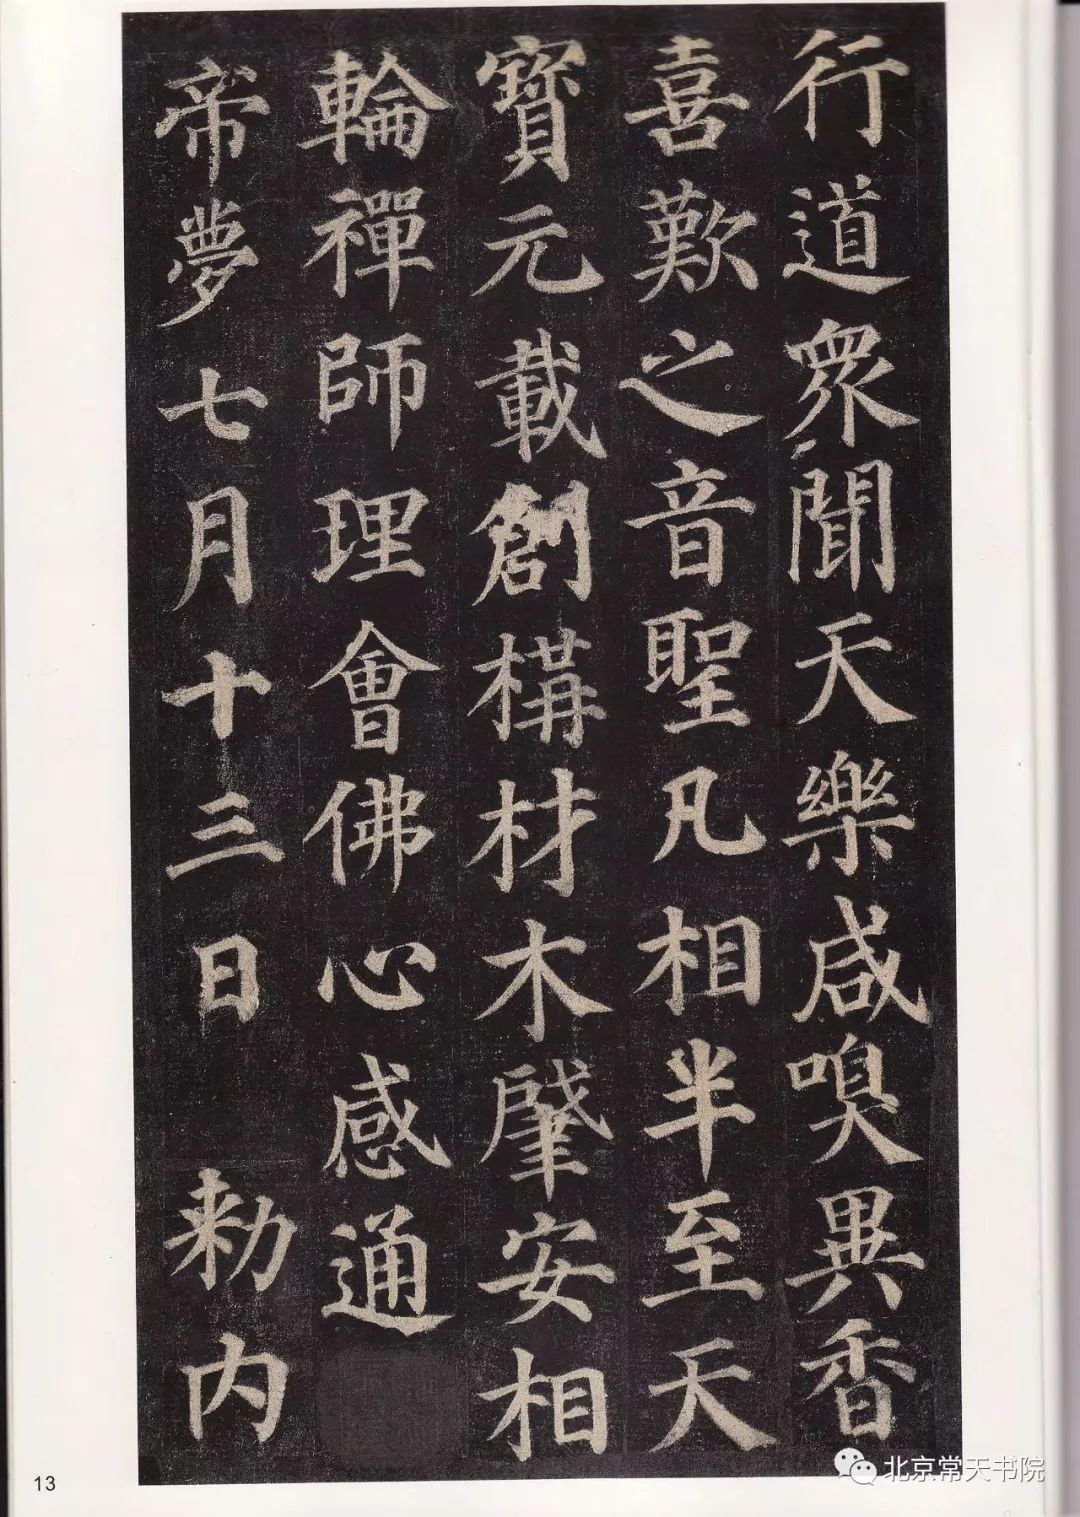 行道衆聞天樂咸嗅異香
喜歎之音聖凡相半至天
寶元載創構材木肇安相
輪禪師理會佛心感通
帝夢七月十三日 勑内
13
北京常天书院